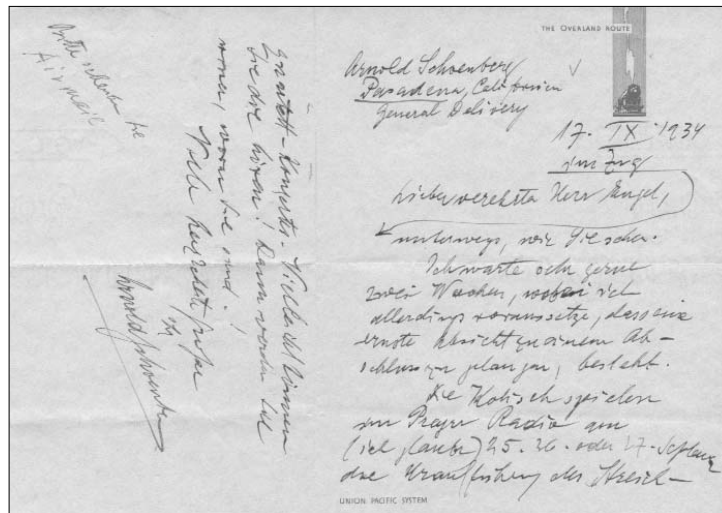 THE OVERLAND ROUTE
Arnold Schoenberg
Pasadena, Californien
General Delivery
17. IX. 1934
im Zug
Lieber verehrter Herr Engel,
unterwegs, wie Sie sehen.
Ich warte sehr gerne
zwei Wochen, wobei ich
allerdings voraussetze, dass eine
ernste Absicht zu einem Ab-
schluss zu gelangen, besteht.
Die Kolisch spielen
im Prager Radio am
(ich glaube) 25. 26. oder 27. Septemb
die Uraufführung des Streich-
UNION PACIFIC SYSTEM
quartett-Konzerts. Vielleicht können
Sie das hören! Dann werden Sie
wissen, woran Sie sind!
Viele herzlichste Grüsse
Ihr
Arnold Schoenberg
Bitte schreiben Sie
Airmail